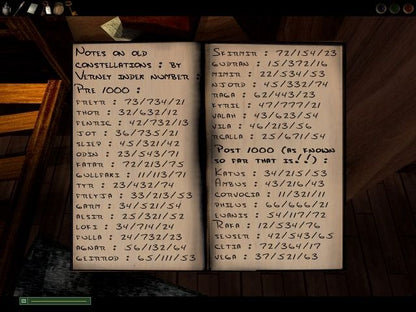 Notes on old
constellations : by
Verney index number :
Pre 1000 :
Freyr : 73/734/21
Thor : 32/632/12
Fenric : 42/732/13
Jot : 36/735/21
Sliep : 45/321/42
Odin : 23/543/71
Fatar : 72/213/75
Gullfaki : 11/113/71
Tyr : 23/432/74
Freyja : 33/213/53
Garm : 34/521/54
Aesir : 25/321/52
Loki : 34/714/24
Fulla : 24/732/23
Agnar : 56/132/64
Geirrod : 65/111/53
Skirnir : 72/154/23
Gudran : 15/372/16
Mimir : 22/534/53
Njord : 45/332/74
Raga : 62/443/23
Kyrie : 47/777/21
Valah : 43/623/54
Vila : 46/213/56
Rcalla : 25/671/54
Post 1000 (as known
so far that is!!) :
Katus : 34/215/53
Ambus : 43/216/43
Corvocia : 11/321/11
Philus : 66/666/21
Evanis : 54/117/72
Raka : 12/534/76
Senser : 42/543/65
Cetia : 72/364/17
Vega : 37/521/63